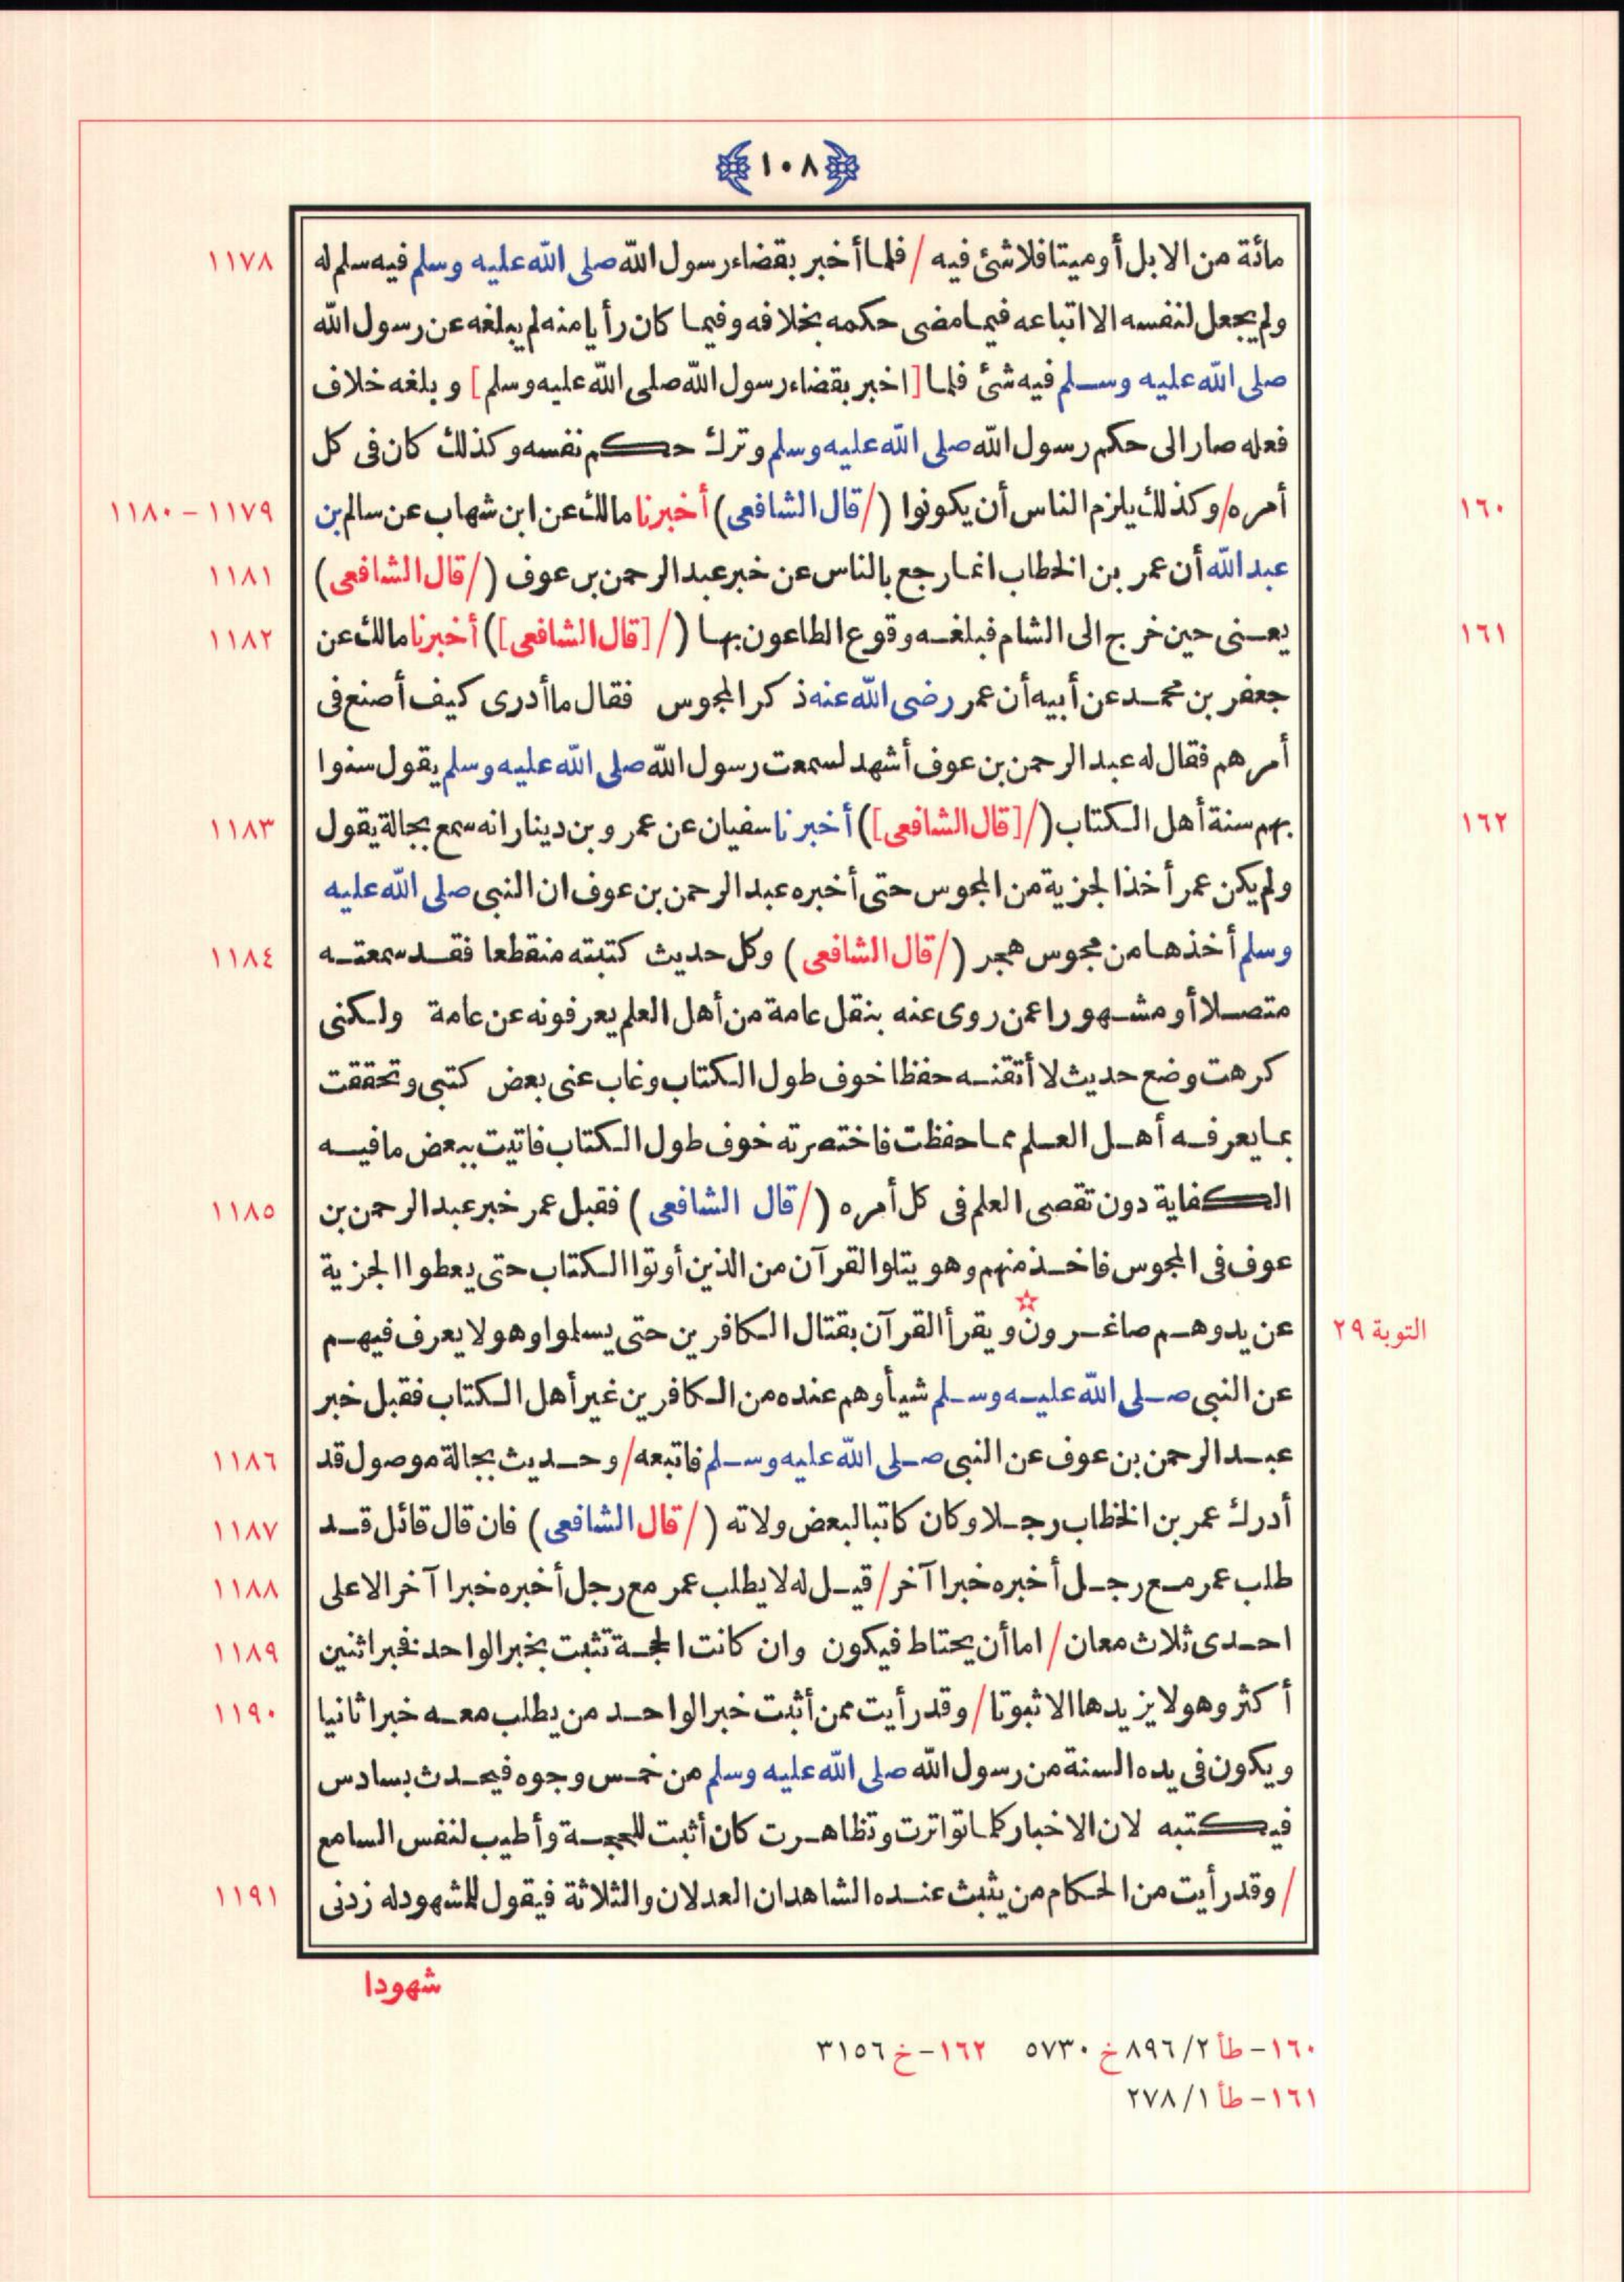 ١٠٨
مائة من الابل أو ميتا فلا شئ فيه / فلما أخبر بقضاء رسول الله صلى الله عليه وسلم فيه سلم له ١١٧٨
ولم يجعل لنفسه الا اتباعه فيما مضى حكمه بخلافه وفيما كان رأيا منه لم يبلغه عن رسول الله
صلى الله عليه وسلم فيه شئ فلما [اخبر بقضاء رسول الله صلى الله عليه وسلم] وبلغه خلاف
فعله صار الى حكم رسول الله صلى الله عليه وسلم وترك حكم نفسه وكذلك كان فى كل
١٦٠ أمره / وكذلك يلزم الناس أن يكونوا (/ قال الشافعى) أخبرنا مالك عن ابن شهاب عن سالم بن ١١٧٩ - ١١٨٠
عبد الله أن عمر بن الخطاب انما رجع بالناس عن خبر عبد الرحمن بن عوف (/ قال الشافعى) ١١٨١
١٦١ يعنى حين خرج الى الشام فبلغه وقوع الطاعون بها (/ [قال الشافعى]) أخبرنا مالك عن ١١٨٢
جعفر بن محمد عن أبيه أن عمر رضى الله عنه ذكر المجوس فقال ما أدرى كيف أصنع فى
أمرهم فقال له عبد الرحمن بن عوف أشهد لسمعت رسول الله صلى الله عليه وسلم يقول سنوا
١٦٢ بهم سنة أهل الكتاب (/ [قال الشافعى]) أخبرنا سفيان عن عمرو بن دينار انه سمع بجالة يقول ١١٨٣
ولم يكن عمر أخذ الجزية من المجوس حتى أخبره عبد الرحمن بن عوف ان النبى صلى الله عليه
وسلم أخذها من مجوس هجر (/ قال الشافعى) وكل حديث كتبته منقطعا فقد سمعته ١١٨٤
متصلا أو مشهورا عمن روى عنه بنقل عامة من أهل العلم يعرفونه عن عامة ولكنى
كرهت وضع حديث لا أتقنه حفظا خوف طول الكتاب وغاب عنى بعض كتبى وتحققت
بما يعرفه أهل العلم مما حفظت فاختصرته خوف طول الكتاب فاتيت ببعض ما فيه
الكفاية دون تقصى العلم فى كل أمره (/ قال الشافعى) فقبل عمر خبر عبد الرحمن بن ١١٨٥
عوف فى المجوس فاخذ منهم وهو يتلو القرآن من الذين أوتوا الكتاب حتى يعطوا الجزية
التوبة ٢٩ عن يد وهم صاغرون☆ ويقرأ القرآن بقتال الكافرين حتى يسلموا وهو لا يعرف فيهم
عن النبى صلى الله عليه وسلم شيأ وهم عنده من الكافرين غير أهل الكتاب فقبل خبر
عبد الرحمن بن عوف عن النبى صلى الله عليه وسلم فاتبعه / وحديث بجالة موصول قد ١١٨٦
أدرك عمر بن الخطاب رجلا وكان كاتبا لبعض ولاته (/ قال الشافعى) فان قال قائل قد ١١٨٧
طلب عمر مع رجل أخبره خبرا آخر / قيل له لا يطلب عمر مع رجل أخبره خبرا آخر الا على ١١٨٨
احدى ثلاث معان / اما أن يحتاط فيكون وان كانت الحجة تثبت بخبر الواحد فخبر اثنين ١١٨٩
أكثر وهو لا يزيدها الا ثبوتا / وقد رأيت ممن أثبت خبر الواحد من يطلب معه خبرا ثانيا ١١٩٠
ويكون فى يده السنة من رسول الله صلى الله عليه وسلم من خمس وجوه فيحدث بسادس
فيكتبه لان الاخبار كلما تواترت وتظاهرت كان أثبت للحجة وأطيب لنفس السامع
/ وقد رأيت من الحكام من يثبت عنده الشاهدان العدلان والثلاثة فيقول للمشهود له زدنى ١١٩١
شهودا
١٦٠ - طأ ٢/ ٨٩٦ خ ٥٧٣٠ ١٦٢ - خ ٣١٥٦
١٦١ - طأ ١/ ٢٧٨